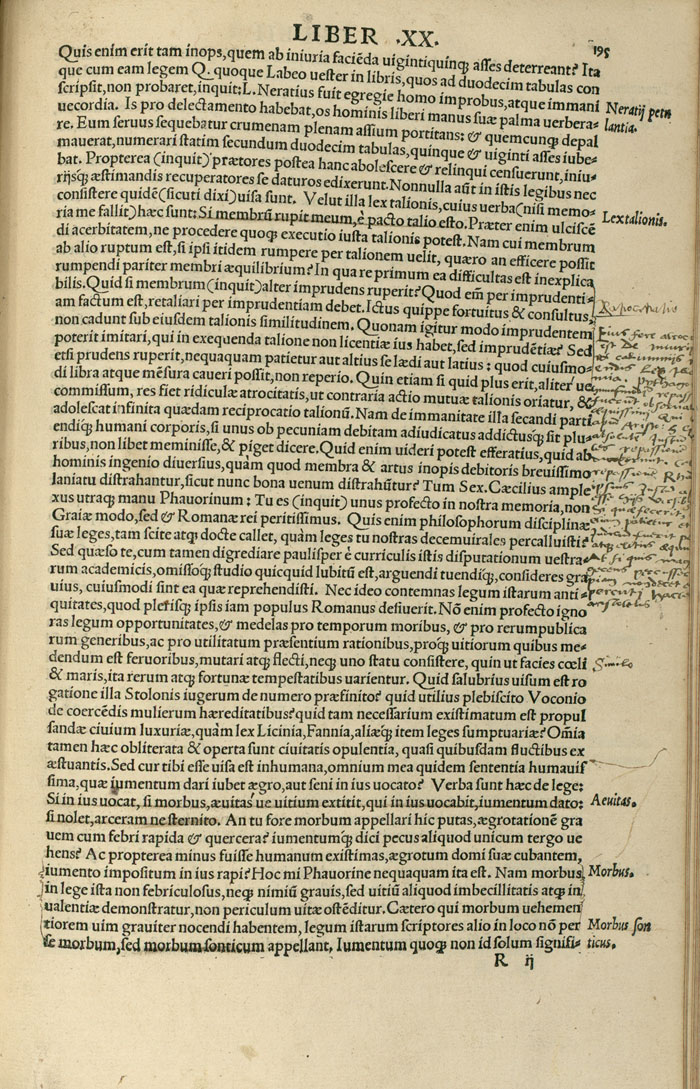 LIBER .XX.
195
Quis enim erit tam inops, quem ab iniuria faciẽda uigintiquinqꝫ asses deterreant? Ita
que cum eam legem Q. quoque Labeo uester in libris, quos ad duodecim tabulas con
scripsit, non probaret, inquit: L. Neratius fuit egregie homo improbus, atque immani
uecordia. Is pro delectamento habebat, os hominis liberi manus suæ palma uerbera-
re. Eum seruus sequebatur crumenam plenam assium portitans: & quemcunqꝫ depal
mauerat, numerari statim secundum duodecim tabulas, quinque & uiginti asses iube-
bat. Propterea (inquit) prætores postea hanc abolescere & relinqui censuerunt, iniu-
rijsqꝫ æstimandis recuperatores se daturos edixerunt. Nonnulla aũt in istis legibus nec
consistere quidẽ (sicuti dixi) uisa sunt. Velut illa lex talionis, cuius uerba (nisi memo-
ria me fallit) hæc sunt: Si membrũ rupit meum, è pacto talio esto. Præter enim ulciscẽ
di acerbitatem, ne procedere quoqꝫ executio iusta talionis potest. Nam cui membrum
ab alio ruptum est, si ipsi itidem rumpere per talionem uelit, quæro an efficere possit
rumpendi pariter membri æquilibrium? In qua re primum ea difficultas est inexplica
bilis. Quid si membrum (inquit) alter imprudens ruperit? Quod em̃ per imprudenti-
am factum est, retaliari per imprudentiam debet. Ictus quippe fortuitus & consultus
non cadunt sub eiusdem talionis similitudinem. Quonam igitur modo imprudentem
poterit imitari, qui in exequenda talione non licentiæ ius habet, sed imprudẽtiæ? Sed
etsi prudens ruperit, nequaquam patietur aut altius se lædi aut latius: quod cuiusmo-
di libra atque mẽsura caueri possit, non reperio. Quin etiam si quid plus erit, aliter ue
commissum, res fiet ridiculæ atrocitatis, ut contraria actio mutuæ talionis oriatur, &
adolescat infinita quædam reciprocatio talionũ. Nam de immanitate illa secandi parti
endiqꝫ humani corporis, si unus ob pecuniam debitam adiudicatus addictusqꝫ sit plu-
ribus, non libet meminisse, & piget dicere. Quid enim uideri potest efferatius, quid ab
hominis ingenio diuersius, quàm quod membra & artus inopis debitoris breuissimo
laniatu distrahantur, sicut nunc bona uenum distrahũtur? Tum Sex. Cæcilius ample
xus utraqꝫ manu Phauorinum: Tu es (inquit) unus profecto in nostra memoria, non
Graiæ modo, sed & Romanæ rei peritissimus. Quis enim philosophorum disciplinæ
suæ leges, tam scite atqꝫ docte callet, quàm leges tu nostras decemuirales percalluisti?
Sed quæso te, cum tamen digrediare paulisper è curriculis istis disputationum uestra-
rum academicis, omissoqꝫ studio quicquid lubitũ est, arguendi tuendiqꝫ, consideres gra
uius, cuiusmodi sint ea quæ reprehendisti. Nec ideo contemnas legum istarum anti-
quitates, quod plerisqꝫ ipsis iam populus Romanus desiuerit. Nõ enim profecto igno
ras legum opportunitates, & medelas pro temporum moribus, & pro rerumpublica
rum generibus, ac pro utilitatum præsentium rationibus, proqꝫ uitiorum quibus me-
dendum est feruoribus, mutari atqꝫ flecti, neqꝫ uno statu consistere, quin ut facies cœli
& maris, ita rerum atqꝫ fortunæ tempestatibus uarientur. Quid salubrius uisum est ro
gatione illa Stolonis iugerum de numero præfinito? quid utilius plebiscito Voconio
de coercẽdis mulierum hæreditatibus? quid tam necessarium existimatum est propul
sandæ ciuium luxuriæ, quàm lex Licinia, Fannia, aliæqꝫ item leges sumptuariæ? Om̃ia
tamen hæc obliterata & operta sunt ciuitatis opulentia, quasi quibusdam fluctibus ex
æstuantis. Sed cur tibi esse uisa est inhumana, omnium mea quidem sententia humauis
sima, quæ iumentum dari iubet ægro, aut seni in ius uocato? Verba sunt hæc de lege:
Si in ius uocat, si morbus, æuitas ue uitium extitit, qui in ius uocabit, iumentum dato:
si nolet, arceram ne sternito. An tu fore morbum appellari hic putas, ægrotationẽ gra
uem cum febri rapida & quercera? iumentumqꝫ dici pecus aliquod unicum tergo ue
hens? Ac propterea minus fuisse humanum existimas, ægrotum domi suæ cubantem,
iumento impositum in ius rapi? Hoc mi Phauorine nequaquam ita est. Nam morbus
in lege ista non febriculosus, neqꝫ nimiũ grauis, sed uitiũ aliquod imbecillitatis atqꝫ in
ualentiæ demonstratur, non periculum uitæ ostẽditur. Cætero qui morbum uehemen
tiorem uim grauiter nocendi habentem, legum istarum scriptores alio in loco nõ per
se morbum, sed morbum sonticum appellant. Iumentum quoqꝫ non id solum signifi-
R ij
Neratij petu
lantia.
Lex talionis.
Simile
Aeuitas.
Morbus.
Morbus son
ticus.